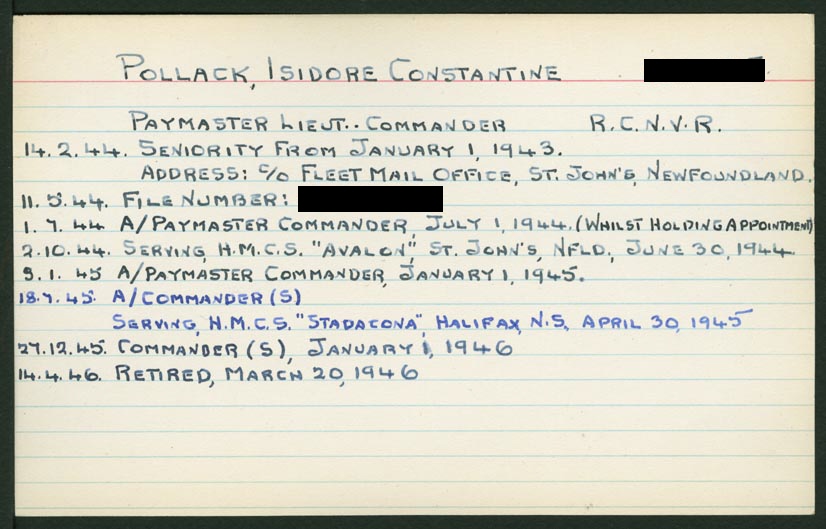 POLLACK, ISIDORE CONSTANTINE
PAYMASTER LIEUT.. COMMANDER R.C.N.V.R.
14.2.44. SENIORITY FROM JANUARY 1, 1943.
ADDRESS: C/O FLEET MAIL OFFICE, ST. JOHN'S, NEWFOUNDLAND.
11.5.44. FILE NUMBER:
1.7.44 A/PAYMASTER COMMANDER, JULY 1, 1944. (WHILST HOLDING APPOINTMENT)
2.10.44. SERVING, H.M.C.S. "AVALON", ST. JOHN'S, NFLD., JUNE 30, 1944.
9.1.45 A/PAYMASTER COMMANDER, JANUARY 1, 1945.
18.7.45. A/COMMANDER (S)
SERVING, H.M.C.S. "STADACONA", HALIFAX, N.S., APRIL 30, 1945
27.12.45. COMMANDER (S), JANUARY 1, 1946
14.4.46. RETIRED, MARCH 20, 1946